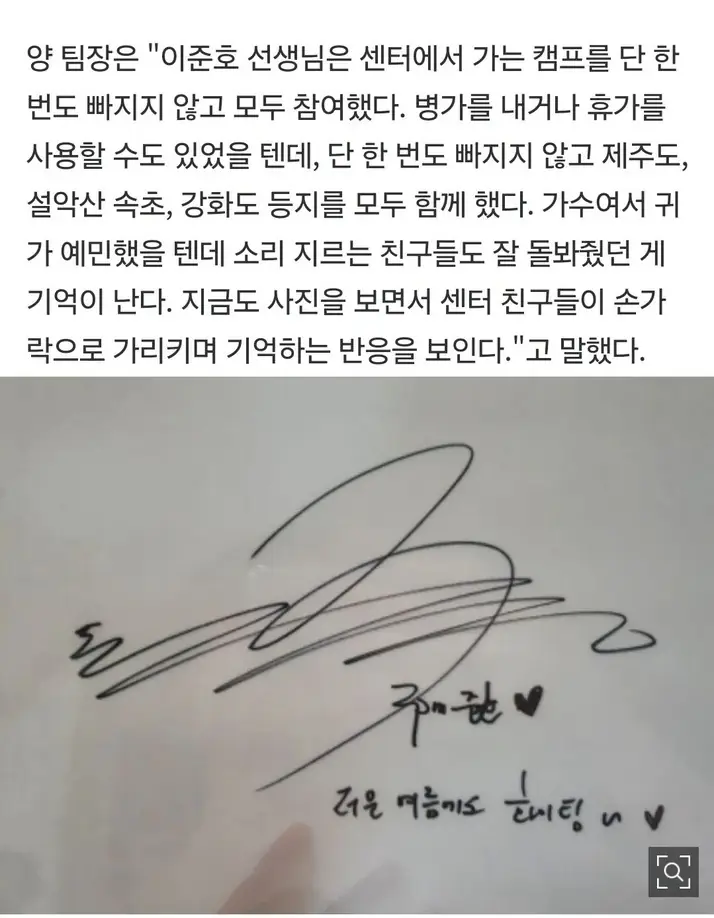 양 팀장은 "이준호 선생님은 센터에서 가는 캠프를 단 한
번도 빠지지 않고 모두 참여했다. 병가를 내거나 휴가를
사용할 수도 있었을 텐데, 단 한 번도 빠지지 않고 제주도,
설악산 속초, 강화도 등지를 모두 함께 했다. 가수여서 귀
가 예민했을 텐데 소리 지르는 친구들도 잘 돌봐줬던 게
기억이 난다. 지금도 사진을 보면서 센터 친구들이 손가
락으로 가리키며 기억하는 반응을 보인다."고 말했다.
더운 여름에도 화이팅 ~ ♥